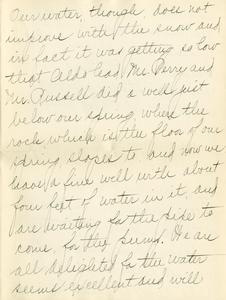 Our water, though, does not
improve with the snow and
in fact it was getting so low
that Aldo lead, Mr. Perry and
Mr. Russell did a well pit
below our spring, where the
rock, which is the floor of our
spring slopes to, and now we
have a fine well with about
four feet of water in it, and
are waiting for the side to
come, for the pump. We are
all delighted for the water
seems excellent and will